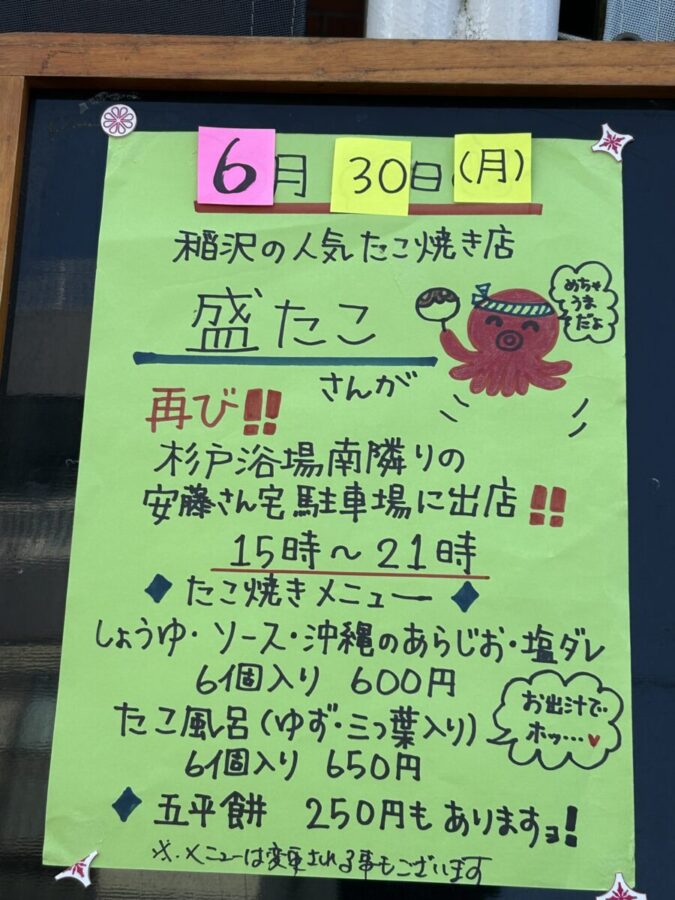 6月 30日 (月)
稲沢の人気たこ焼き店
盛たこ
めちゃ
うま
だよ
さんが
再び!!
杉戸浴場南隣りの
安藤さん宅駐車場に出店!!
15時～21時
◆たこ焼きメニュー◆
しょうゆ・ソース・沖縄のあらじお・塩ダレ
6個入り 600円
たこ風呂(ゆず・三つ葉入り)
お出汁で
ホッ…♥
6個入り 650円
◆五平餅 250円もありますョ!
※.メニューは変更される事もございます